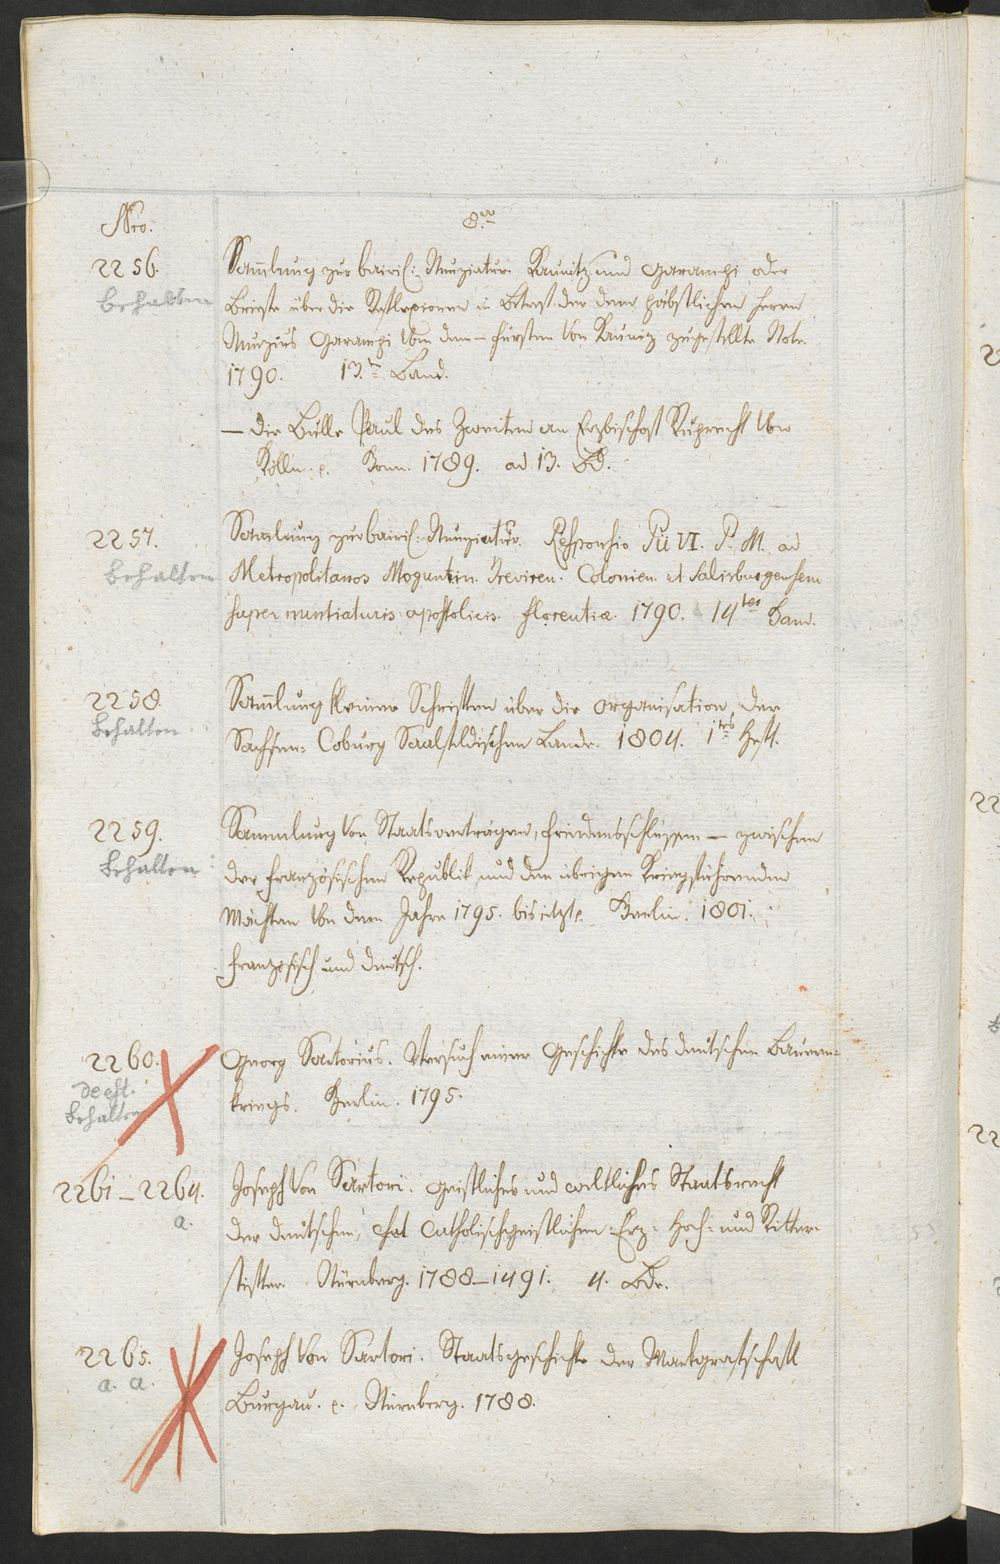 Nro. 8.vo
2256. Sam̅lung zur bairis: Nunziatur. Kaunitz und Garampi oder
behalten Briefe über die Reflexionen in Betref der dem päbstlichen Herrn
Nunzius Garampi von dem — Fürsten von Kauniz zugestellte Note.
1790. 13.r Band.
— die Bulle Paul des Zweiten an Erzbischof Ruprecht von
Kölln. e. Bonn. 1789. ad 13. Bd.
2257. Sammlung zur bairis: Nunziatur. Responsio Pii VI. P. M. ad
behalten Metropolitanos Moguntin. Treviren. Colonien. et Salisburgensem
super nuntiaturis apostolicis. Florentiæ. 1790. 14ter Band.
2258. Sam̅lung kleiner Schriften über die Organisation der
behalten Sachsen: Coburg Saalfeldischen Lande. 1804. 1tes Heft.
2259. Sammlung von Staatsverträgen, Friedensschlüssen — zwischen
behalten der französischen Republik und den übrigen Kriegführenden
Mächten von dem Jahre 1795. bis itzt e. Berlin. 1801.
französisch und deutsch.
2260. Georg Sartorius. Versuch einer Geschichte des deutschen Bauren-
deest. behalten kriegs. Berlin. 1795.
2261–2264. Joseph von Sartori. geistliches und weltliches Staatsrecht
a. der deutschen, catholischgeistlichen Erz- Hoch- und Ritter-
stifter. Nürnberg. 1788–1491. 4. Bde.
2265. Joseph von Sartori. Staatsgeschichte der Markgrafschaft
a. a. Burgau. e. Nürnberg. 1788.